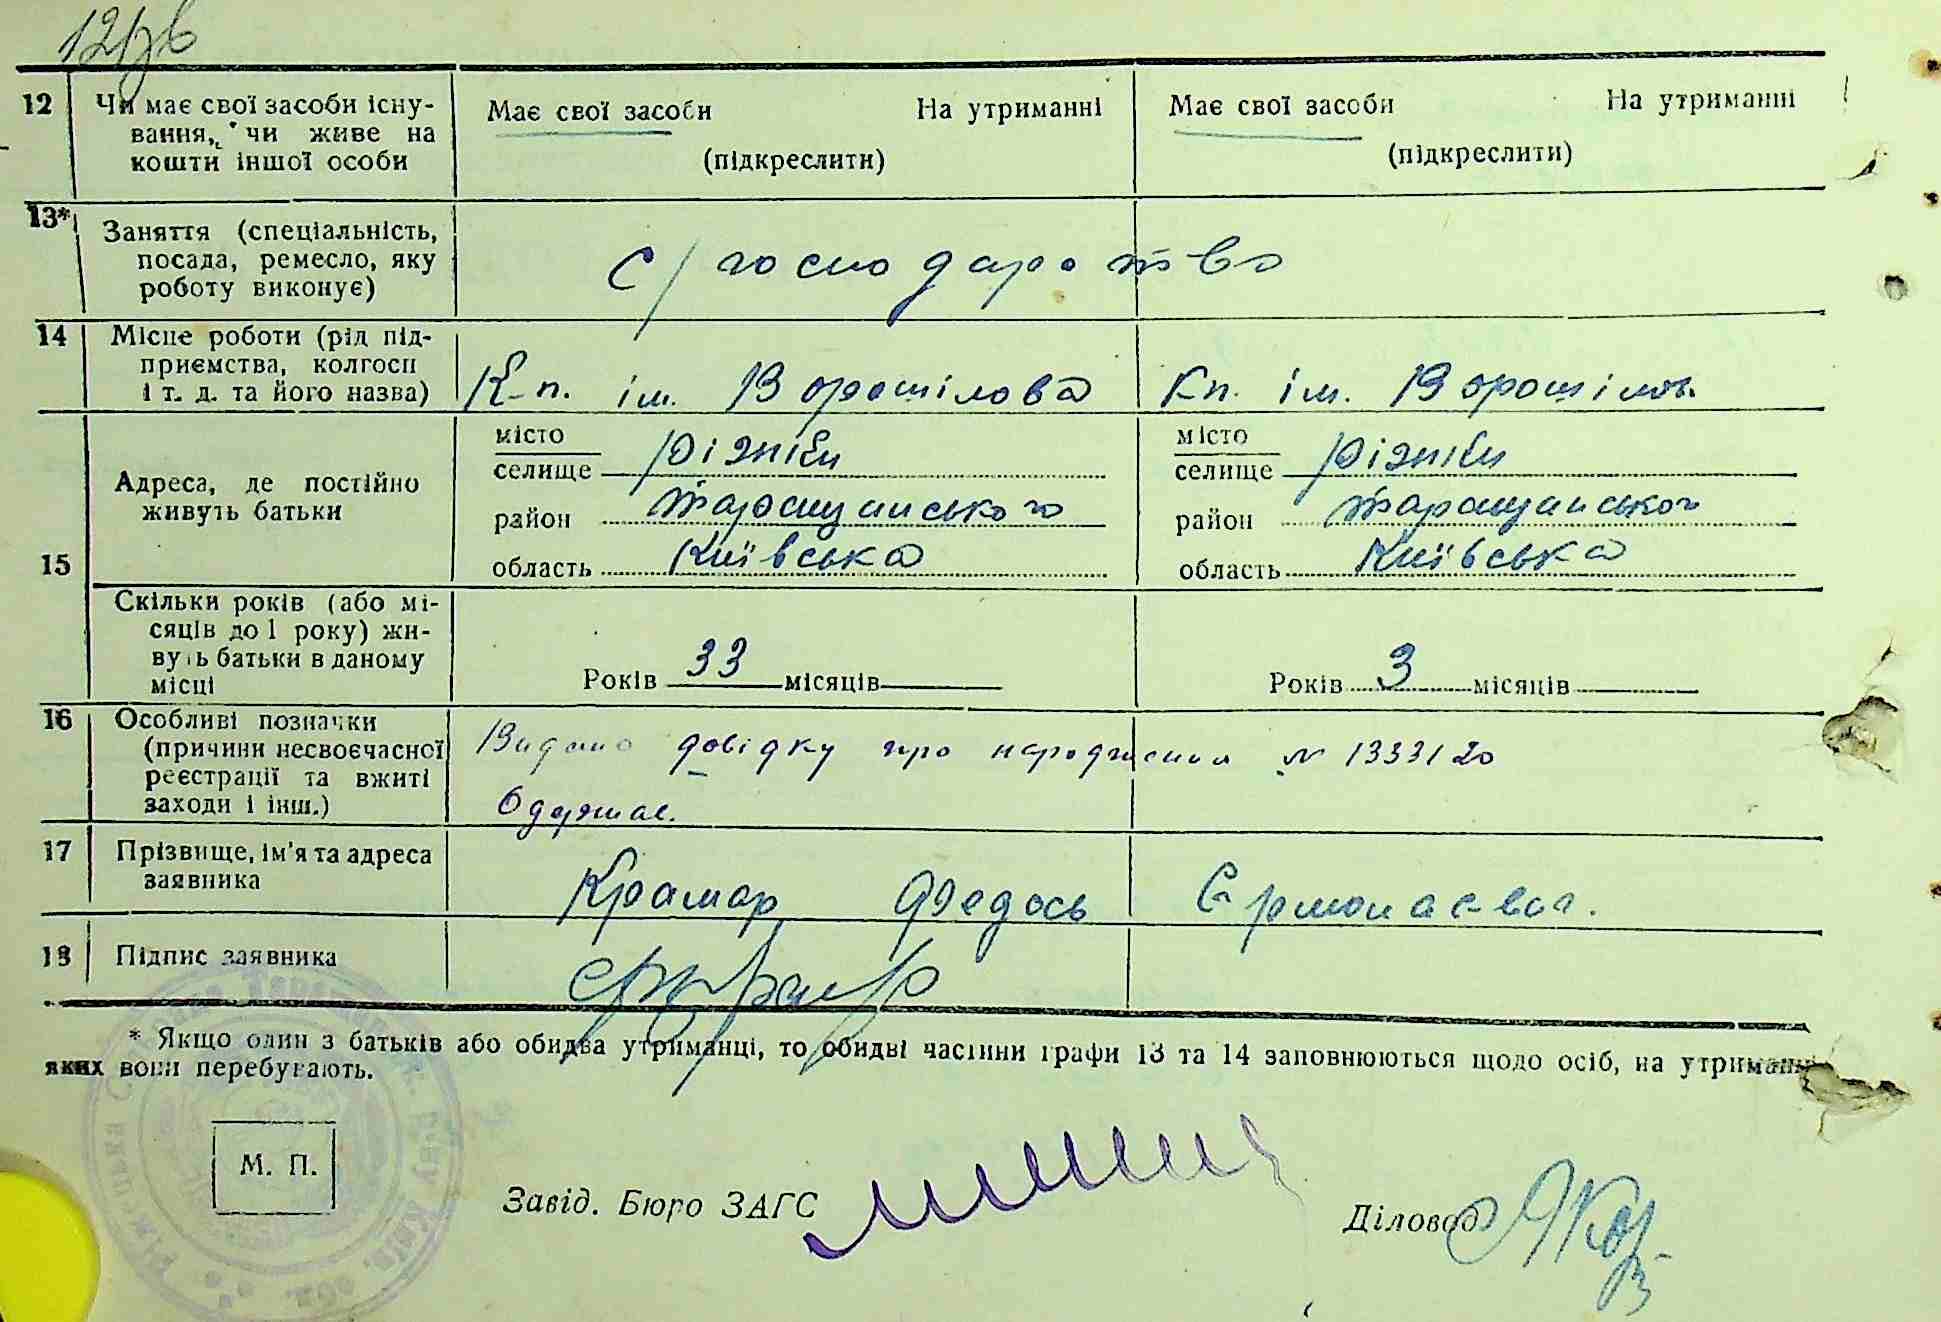 12
Чи має свої засоби існу-
вання, чи живе на
кошти іншої особи
Має свої засоби На утриманні
(підкреслити)
Має свої засоби На утриманні
(підкреслити)
13*
Заняття (спеціальність,
посада, ремесло, яку
роботу виконує)
с/господарство
14
Місце роботи (рід під-
приємства, колгосп
і т. д. та його назва)
К-п. ім. Ворошілова
Кп. ім. Ворошілов.
15
Адреса, де постійно
живуть батьки
місто
селище Ріжки
район Таращанського
область Київська
місто
селище Ріжки
район Таращанського
область Київська
Скільки років (або мі-
сяців до 1 року) жи-
вуть батьки в даному
місці
Років 33 місяців
Років 3 місяців
16
Особливі позначки
(причини несвоєчасної
реєстрації та вжиті
заходи і інш.)
Видано довідку про народження № 1333120
Одержав.
17
Прізвище, ім'я та адреса
заявника
Крамар Федось
18
Підпис заявника
* Якщо один з батьків або обидва утриманці, то обидві частини графи 13 та 14 заповнюються щодо осіб, на утриманні
яких вони перебувають.
М. П.
Завід. Бюро ЗАГС
Діловод